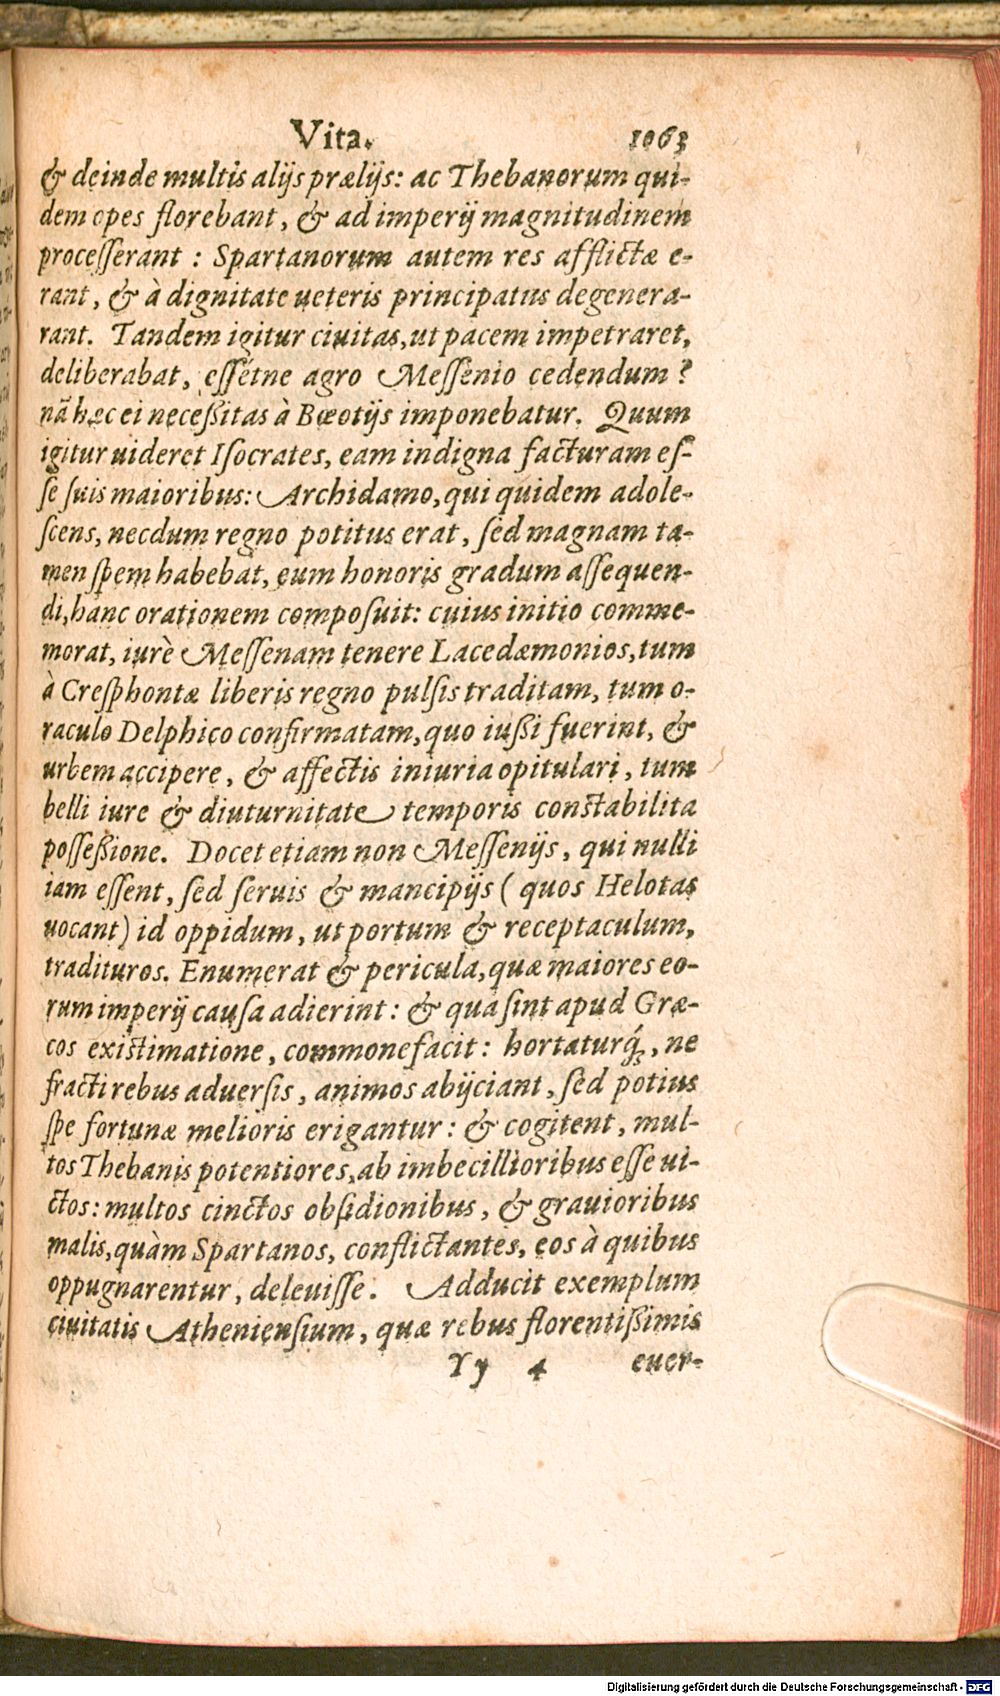 Vita. 1063
& deinde multis alijs prælijs: ac Thebanorum qui-
dem opes florebant, & ad imperij magnitudinem
processerant : Spartanorum autem res afflictæ e-
rant, & à dignitate ueteris principatus degenera-
rant. Tandem igitur ciuitas, ut pacem impetraret,
deliberabat, essétne agro Messenio cedendum?
nã hęc ei necessitas à Bœotijs imponebatur. Quum
igitur uideret Isocrates, eam indigna facturam es-
se suis maioribus: Archidamo, qui quidem adole-
scens, necdum regno potitus erat, sed magnam ta-
men spem habebat, eum honoris gradum assequen-
di, hanc orationem composuit: cuius initio comme-
morat, iurè Messenam tenere Lacedæmonios, tum
à Cresphontæ liberis regno pulsis traditam, tum o-
raculo Delphico confirmatam, quo iussi fuerint, &
urbem accipere, & affectis iniuria opitulari, tum
belli iure & diuturnitate temporis constabilita
possessione. Docet etiam non Messenijs, qui nulli
iam essent, sed seruis & mancipijs ( quos Helotas
uocant) id oppidum, ut portum & receptaculum,
tradituros. Enumerat & pericula, quæ maiores eo-
rum imperij causa adierint: & qua sint apud Græ-
cos existimatione, commonefacit: hortaturq́, ne
fracti rebus aduersis, animos abijciant, sed potius
spe fortunæ melioris erigantur: & cogitent, mul-
tos Thebanis potentiores, ab imbecillioribus esse ui-
ctos: multos cinctos obsidionibus, & grauioribus
malis, quàm Spartanos, conflictantes, eos à quibus
oppugnarentur, deleuisse. Adducit exemplum
ciuitatis Atheniensium, quæ rebus florentissimis
Yy 4 euer-
Digitalisierung gefördert durch die Deutsche Forschungsgemeinschaft - DFG